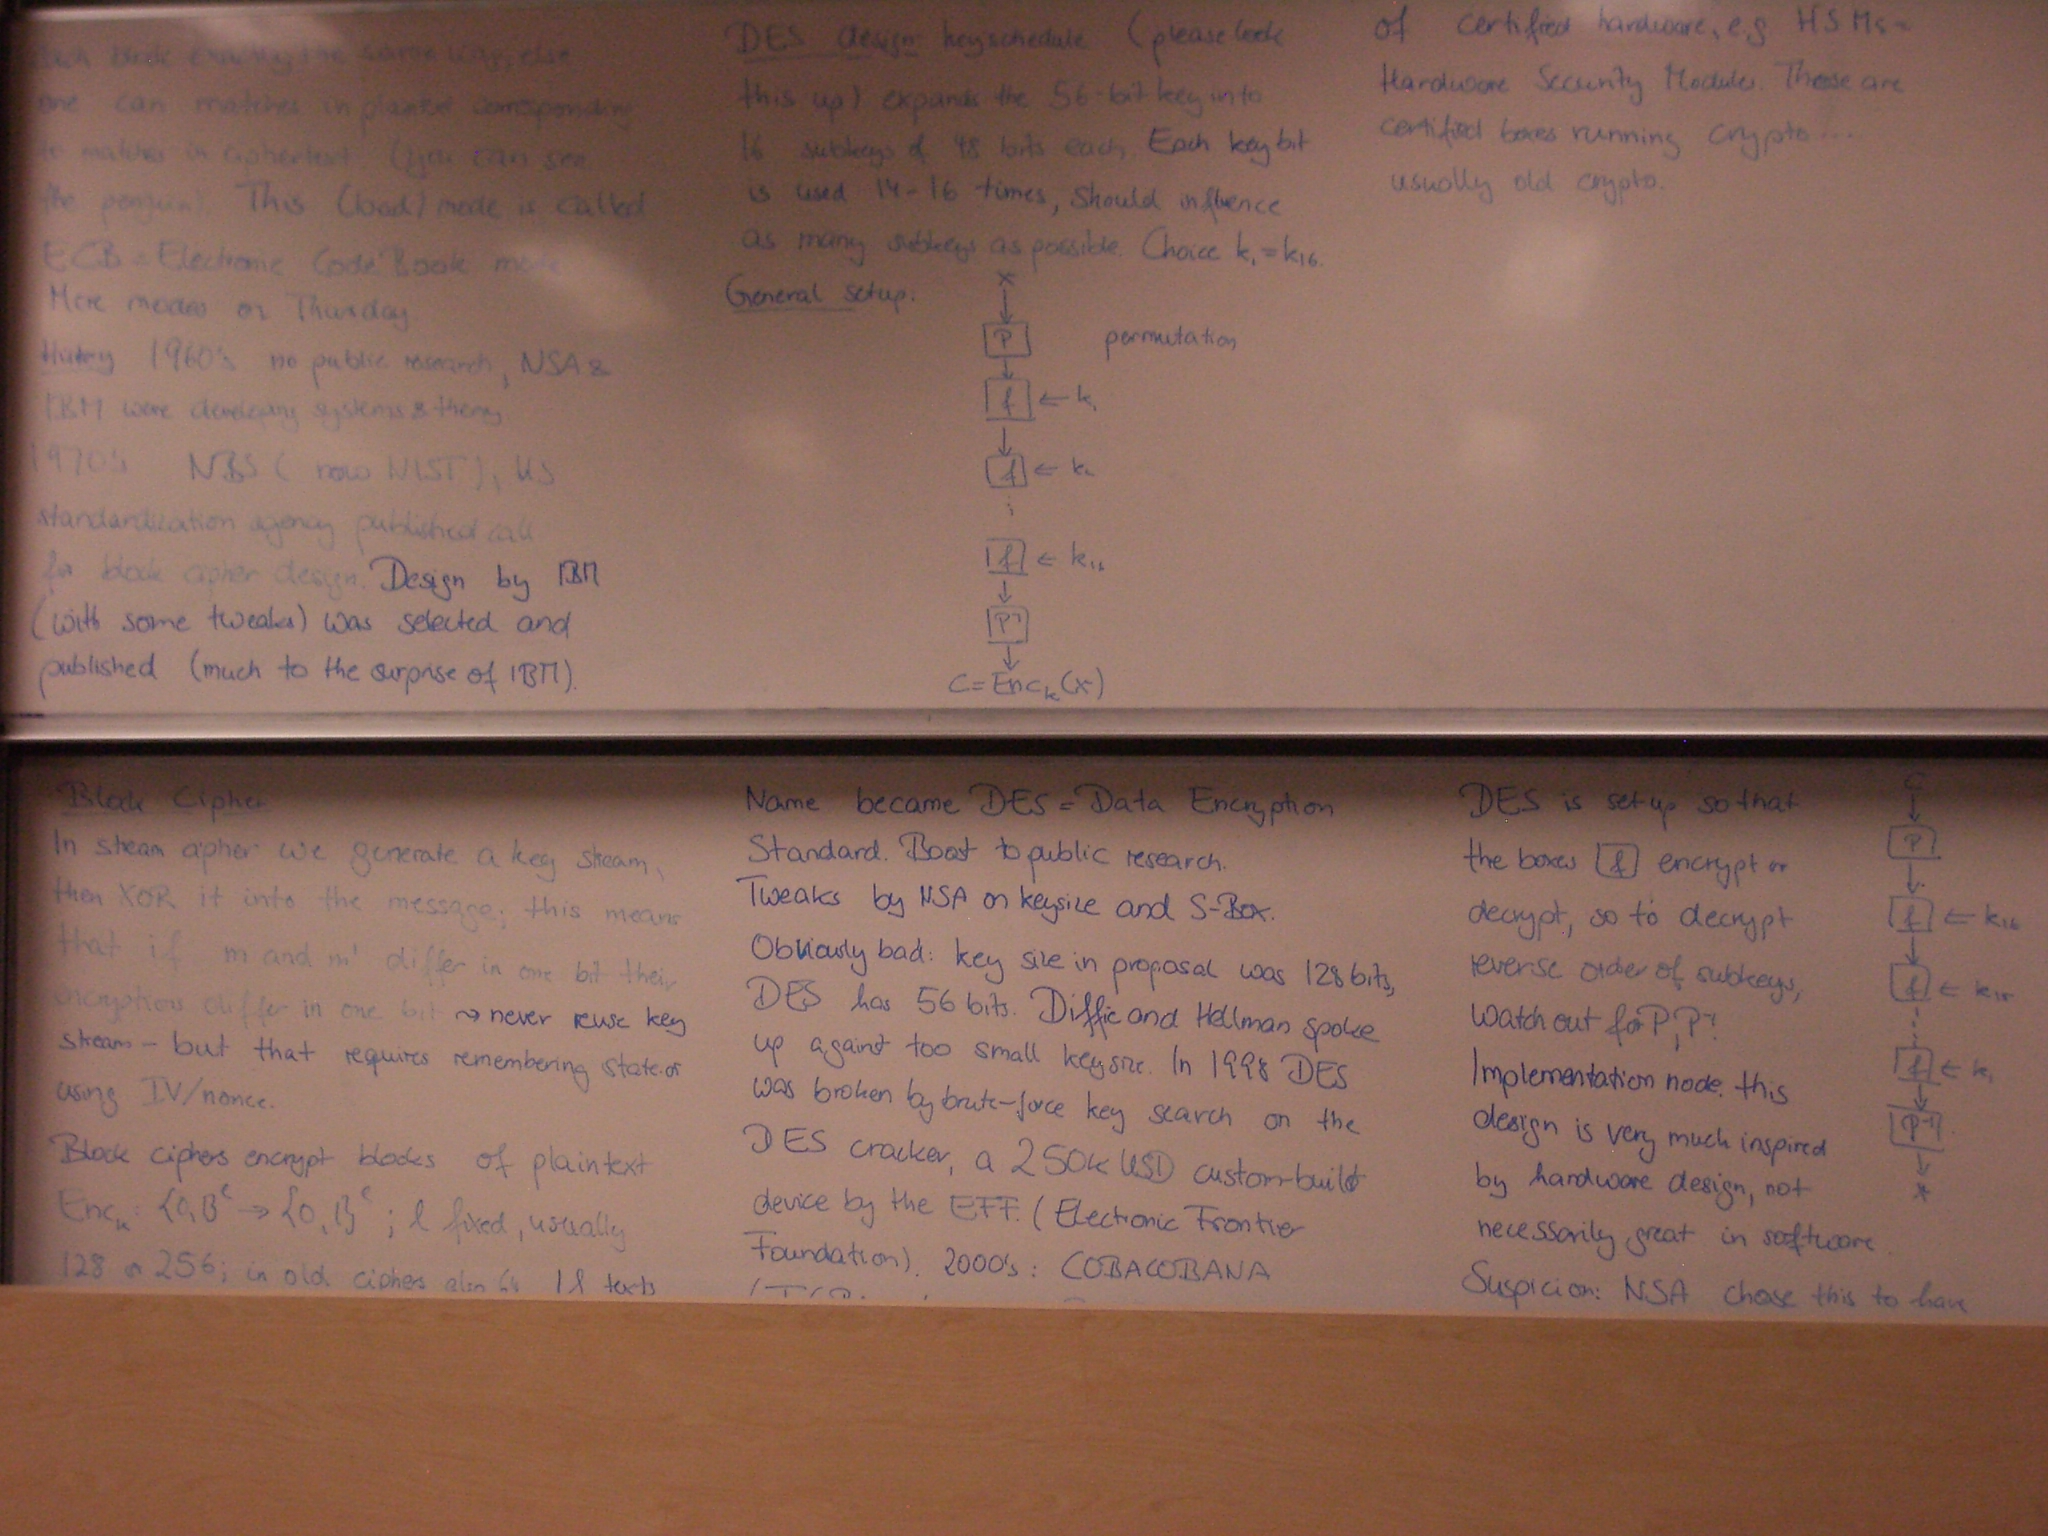 each block exactly the same way, else
one can matches in plaintext corresponding
to matches in ciphertext (you can see
the penguin). This (bad) mode is called
ECB = Electronic Code Book mode
More modes on Thursday
History 1960's no public research, NSA &
IBM were developing systems & theory
1970's NBS (now NIST), US
standardization agency published call
for block cipher design. Design by IBM
(with some tweaks) was selected and
published (much to the surprise of IBM).
DES design: key schedule (please look
this up) expands the 56-bit key into
16 subkeys of 48 bits each. Each key bit
is used 14-16 times, should influence
as many subkeys as possible. Choice k₁=k₁₆.
General setup:
x
P permutation
f ← k₁
f ← k₂
⋮
f ← k₁₆
P⁻¹
C=Encₖ(x)
of certified hardware, e.g. HSMs =
Hardware Security Modules. These are
certified boxes running crypto....
usually old crypto.
Block Cipher
In stream cipher we generate a key stream,
then XOR it into the message; this means
that if m and m' differ in one bit their
encryptions differ in one bit ⇝ never reuse key
stream – but that requires remembering state or
using IV/nonce.
Block ciphers encrypt blocks of plaintext
Encₖ: {0,1}^ℓ → {0,1}^ℓ ; ℓ fixed, usually
128 or 256; in old ciphers also 64
Name became DES = Data Encryption
Standard. Boost to public research.
Tweaks by NSA on keysize and S-Box.
Obviously bad: key size in proposal was 128 bits,
DES has 56 bits. Diffie and Hellman spoke
up against too small keysize. In 1998 DES
was broken by brute-force key search on the
DES cracker, a 250k USD custom-built
device by the EFF. (Electronic Frontier
Foundation). 2000's: COBACOBANA
DES is set up so that
the boxes f encrypt or
decrypt, so to decrypt
reverse order of subkeys,
Watch out for P, P⁻¹!
Implementation node: this
design is very much inspired
by hardware design, not
necessarily great in software.
Suspicion: NSA chose this to have
C
P
f ← k₁₆
f ← k₁₅
⋮
f ← k₁
P⁻¹
x